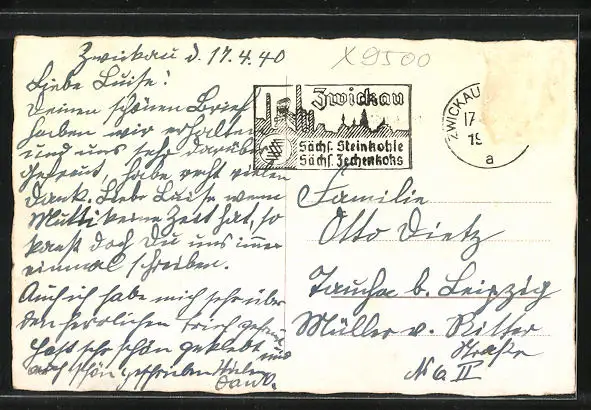 Zwickau d. 17.4.40
Liebe Luise!
Deinen schönen Brief
haben wir erhalten
und uns sehr darüber
gefreut, habe recht vielen
Dank. Liebe Luise wenn
Mutti keine Zeit hat, so
kanst doch Du uns immer
einmal schreiben.
Auch ich habe mich sehr über
den herrlichen Brief gefreut
hast sehr schön geklebt und
auch schön geschrieben Vielen
Dank.
X9500
Zwickau
Sächs. Steinkohle
Sächs. Zechenkoks
ZWICKAU
17
19
a
Familie
Otto Dietz
Taucha b. Leipzig
Müller v. Ritter
Straße
№ 6 II